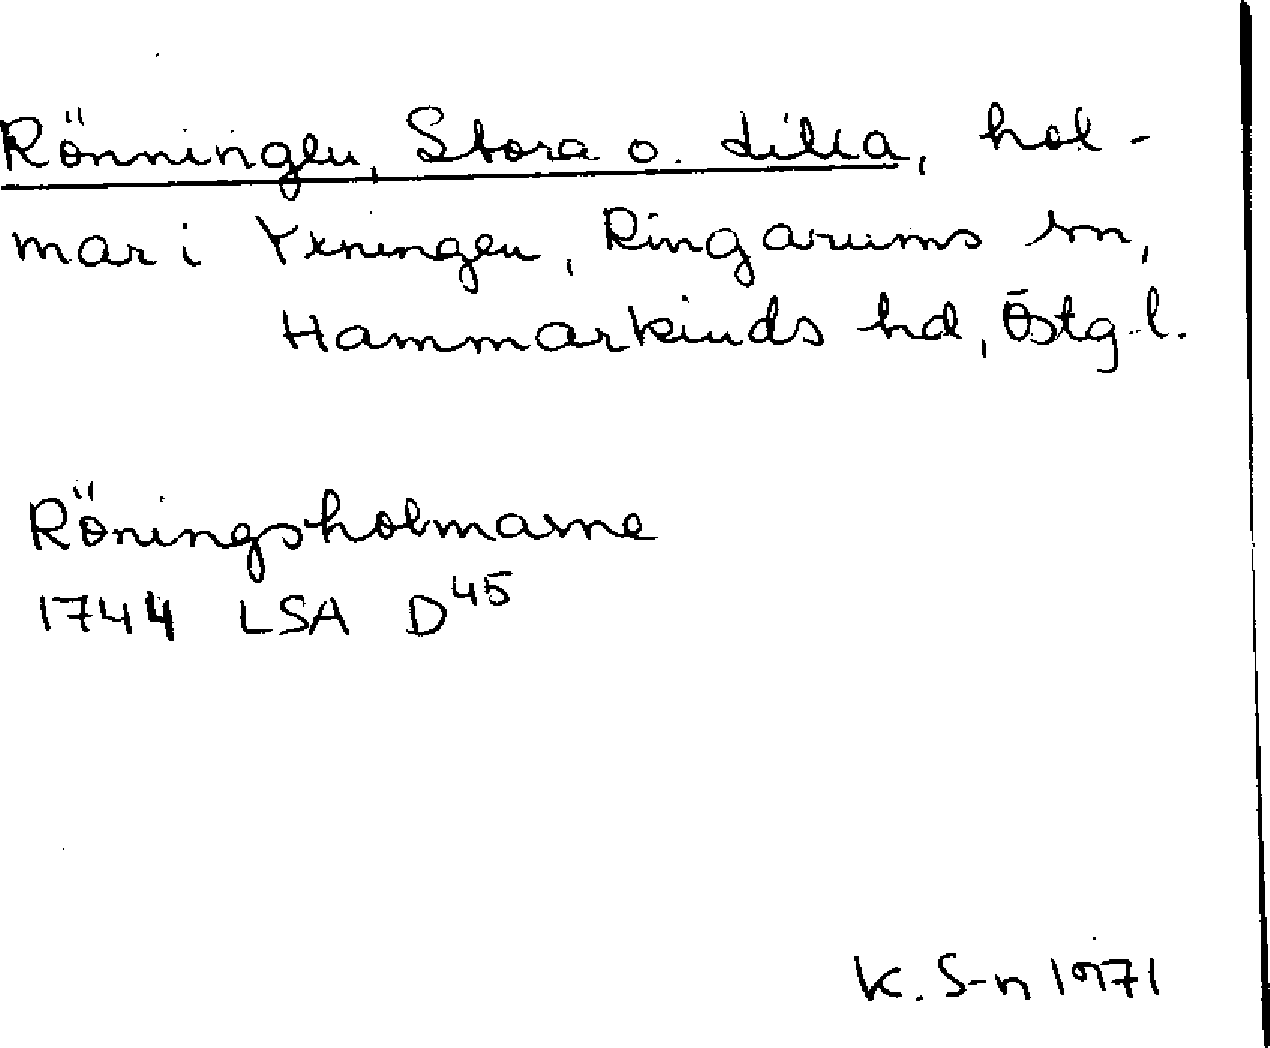 Rönningen, Stora o. Lilla, hol-
mar i Yxningen, Ringarums sn,
Hammarkinds hd, Östg.l.
Röningsholmarne
1744 LSA D⁴⁵
K. S-n 1971